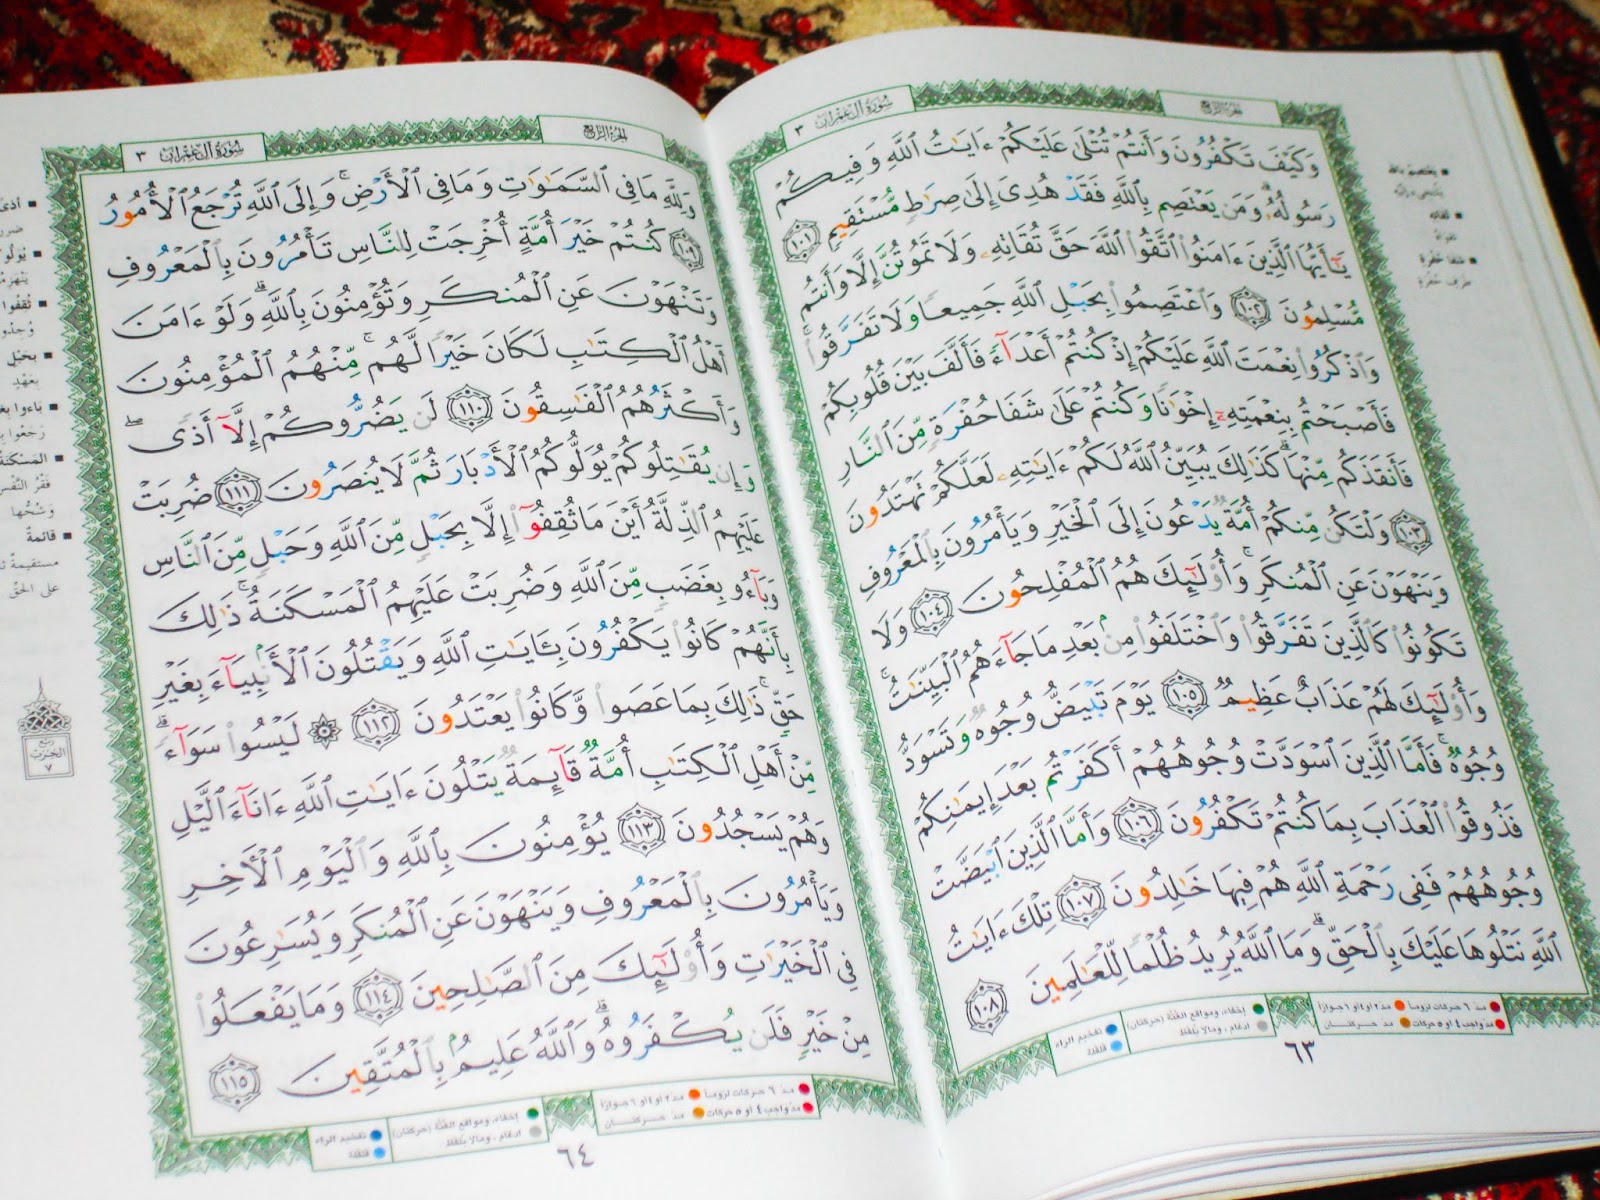 الجزء الرابع
سورة آل عمران ٣
وَكَيْفَ تَكْفُرُونَ وَأَنتُمْ تُتْلَىٰ عَلَيْكُمْ ءَايَٰتُ ٱللَّهِ وَفِيكُمْ
رَسُولُهُۥ ۗ وَمَن يَعْتَصِم بِٱللَّهِ فَقَدْ هُدِىَ إِلَىٰ صِرَٰطٍ مُّسْتَقِيمٍ ١٠١
يَٰٓأَيُّهَا ٱلَّذِينَ ءَامَنُوا۟ ٱتَّقُوا۟ ٱللَّهَ حَقَّ تُقَاتِهِۦ وَلَا تَمُوتُنَّ إِلَّا وَأَنتُم
مُّسْلِمُونَ ١٠٢ وَٱعْتَصِمُوا۟ بِحَبْلِ ٱللَّهِ جَمِيعًا وَلَا تَفَرَّقُوا۟ ۚ
وَٱذْكُرُوا۟ نِعْمَتَ ٱللَّهِ عَلَيْكُمْ إِذْ كُنتُمْ أَعْدَآءً فَأَلَّفَ بَيْنَ قُلُوبِكُمْ
فَأَصْبَحْتُم بِنِعْمَتِهِۦٓ إِخْوَٰنًا وَكُنتُمْ عَلَىٰ شَفَا حُفْرَةٍ مِّنَ ٱلنَّارِ
فَأَنقَذَكُم مِّنْهَا ۗ كَذَٰلِكَ يُبَيِّنُ ٱللَّهُ لَكُمْ ءَايَٰتِهِۦ لَعَلَّكُمْ تَهْتَدُونَ
١٠٣ وَلْتَكُن مِّنكُمْ أُمَّةٌ يَدْعُونَ إِلَى ٱلْخَيْرِ وَيَأْمُرُونَ بِٱلْمَعْرُوفِ
وَيَنْهَوْنَ عَنِ ٱلْمُنكَرِ ۚ وَأُو۟لَٰٓئِكَ هُمُ ٱلْمُفْلِحُونَ ١٠٤ وَلَا
تَكُونُوا۟ كَٱلَّذِينَ تَفَرَّقُوا۟ وَٱخْتَلَفُوا۟ مِنۢ بَعْدِ مَا جَآءَهُمُ ٱلْبَيِّنَٰتُ ۚ
وَأُو۟لَٰٓئِكَ لَهُمْ عَذَابٌ عَظِيمٌ ١٠٥ يَوْمَ تَبْيَضُّ وُجُوهٌ وَتَسْوَدُّ
وُجُوهٌ ۚ فَأَمَّا ٱلَّذِينَ ٱسْوَدَّتْ وُجُوهُهُمْ أَكَفَرْتُم بَعْدَ إِيمَٰنِكُمْ
فَذُوقُوا۟ ٱلْعَذَابَ بِمَا كُنتُمْ تَكْفُرُونَ ١٠٦ وَأَمَّا ٱلَّذِينَ ٱبْيَضَّتْ
وُجُوهُهُمْ فَفِى رَحْمَةِ ٱللَّهِ هُمْ فِيهَا خَٰلِدُونَ ١٠٧ تِلْكَ ءَايَٰتُ
ٱللَّهِ نَتْلُوهَا عَلَيْكَ بِٱلْحَقِّ ۗ وَمَا ٱللَّهُ يُرِيدُ ظُلْمًا لِّلْعَٰلَمِينَ ١٠٨
مدّ ٦ حركات لزوماً
مدّ ٢ أو ٤ أو ٦ جوازاً
مدّ واجب ٤ أو ٥ حركات
مدّ حركتان
إخفاء، ومواقع الغُنَّة (حركتان)
ادغام، ومالا يُلفظ
تفخيم الراء
قلقلة
٦٣
الجزء الرابع
سورة آل عمران ٣
وَلِلَّهِ مَا فِى ٱلسَّمَٰوَٰتِ وَمَا فِى ٱلْأَرْضِ ۚ وَإِلَى ٱللَّهِ تُرْجَعُ ٱلْأُمُورُ
١٠٩ كُنتُمْ خَيْرَ أُمَّةٍ أُخْرِجَتْ لِلنَّاسِ تَأْمُرُونَ بِٱلْمَعْرُوفِ
وَتَنْهَوْنَ عَنِ ٱلْمُنكَرِ وَتُؤْمِنُونَ بِٱللَّهِ ۗ وَلَوْ ءَامَنَ
أَهْلُ ٱلْكِتَٰبِ لَكَانَ خَيْرًا لَّهُم ۚ مِّنْهُمُ ٱلْمُؤْمِنُونَ
وَأَكْثَرُهُمُ ٱلْفَٰسِقُونَ ١١٠ لَن يَضُرُّوكُمْ إِلَّآ أَذًى ۖ
وَإِن يُقَٰتِلُوكُمْ يُوَلُّوكُمُ ٱلْأَدْبَارَ ثُمَّ لَا يُنصَرُونَ ١١١ ضُرِبَتْ
عَلَيْهِمُ ٱلذِّلَّةُ أَيْنَ مَا ثُقِفُوٓا۟ إِلَّا بِحَبْلٍ مِّنَ ٱللَّهِ وَحَبْلٍ مِّنَ ٱلنَّاسِ
وَبَآءُو بِغَضَبٍ مِّنَ ٱللَّهِ وَضُرِبَتْ عَلَيْهِمُ ٱلْمَسْكَنَةُ ۚ ذَٰلِكَ
بِأَنَّهُمْ كَانُوا۟ يَكْفُرُونَ بِـَٔايَٰتِ ٱللَّهِ وَيَقْتُلُونَ ٱلْأَنۢبِيَآءَ بِغَيْرِ
حَقٍّ ۚ ذَٰلِكَ بِمَا عَصَوا۟ وَّكَانُوا۟ يَعْتَدُونَ ١١٢ ۞ لَيْسُوا۟ سَوَآءً ۗ
مِّنْ أَهْلِ ٱلْكِتَٰبِ أُمَّةٌ قَآئِمَةٌ يَتْلُونَ ءَايَٰتِ ٱللَّهِ ءَانَآءَ ٱلَّيْلِ
وَهُمْ يَسْجُدُونَ ١١٣ يُؤْمِنُونَ بِٱللَّهِ وَٱلْيَوْمِ ٱلْءَاخِرِ
وَيَأْمُرُونَ بِٱلْمَعْرُوفِ وَيَنْهَوْنَ عَنِ ٱلْمُنكَرِ وَيُسَٰرِعُونَ
فِى ٱلْخَيْرَٰتِ وَأُو۟لَٰٓئِكَ مِنَ ٱلصَّٰلِحِينَ ١١٤ وَمَا يَفْعَلُوا۟
مِنْ خَيْرٍ فَلَن يُكْفَرُوهُ ۗ وَٱللَّهُ عَلِيمٌۢ بِٱلْمُتَّقِينَ ١١٥
مدّ ٦ حركات لزوماً
مدّ ٢ أو ٤ أو ٦ جوازاً
مدّ واجب ٤ أو ٥ حركات
مدّ حركتان
إخفاء، ومواقع الغُنَّة (حركتان)
ادغام، ومالا يُلفظ
تفخيم الراء
قلقلة
٦٤
ثُقِفُوا
بِحَبْلٍ
بِعَهْدٍ
المَسْكَنَة
فَقْرُ النَّفْس
وَشُحُّها
قائمةٌ
على الحق
ربع
الحزب
٧